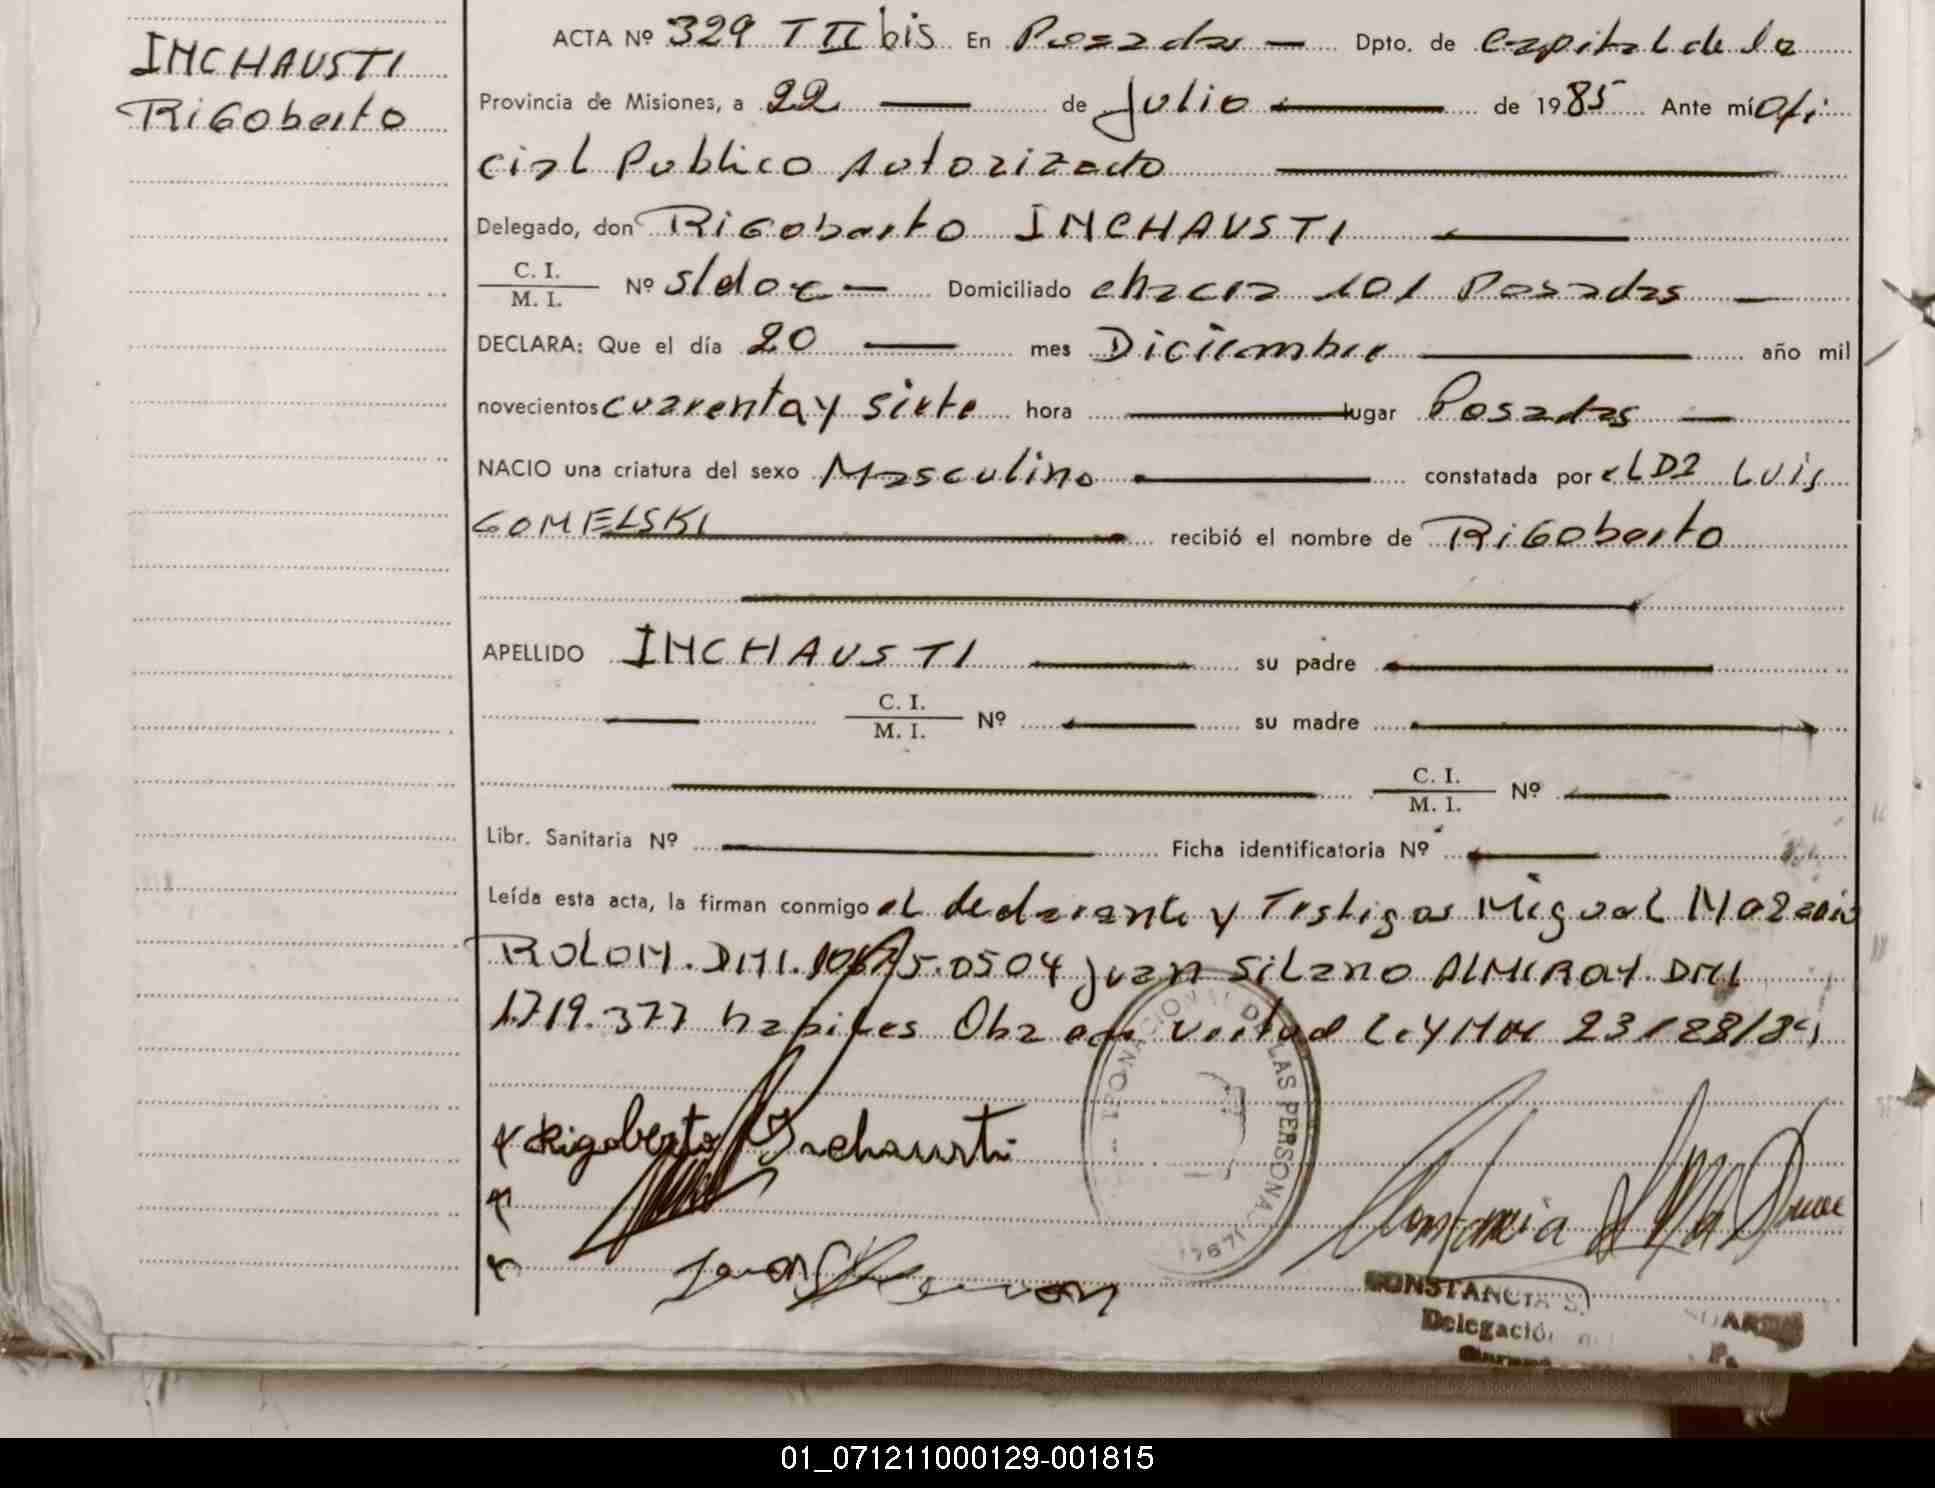 INCHAUSTI
RiGoberto
ACTA Nº 329 T II bis En Posadas — Dpto. de Capital de la
Provincia de Misiones, a 22 de Julio de 1985 Ante mí Ofi
cial Publico Autorizado
Delegado, don RiGoberto INCHAUSTI
C. I.
M. I. Nº s/doc — Domiciliado chacra 101 Posadas —
DECLARA: Que el día 20 mes Diciembre año mil
novecientos cuarenta y siete hora lugar Posadas —
NACIO una criatura del sexo Masculino constatada por el D2 Luis
GOMELSKI recibió el nombre de RiGoberto
APELLIDO INCHAUSTI su padre
C. I.
M. I. Nº su madre
C. I.
M. I. Nº
Libr. Sanitaria Nº Ficha identificatoria Nº
Leída esta acta, la firman conmigo el declarante y Testigos Miguel
ROLON. DNI. Juan Silano ALMIRON. DNI
1.719.377 habiles Oba en Virtud Ley Nac 23128/84
x Rigoberto Inchausti
x
x
DE LAS PERSONAS
CONSTANCIA S.
Delegación